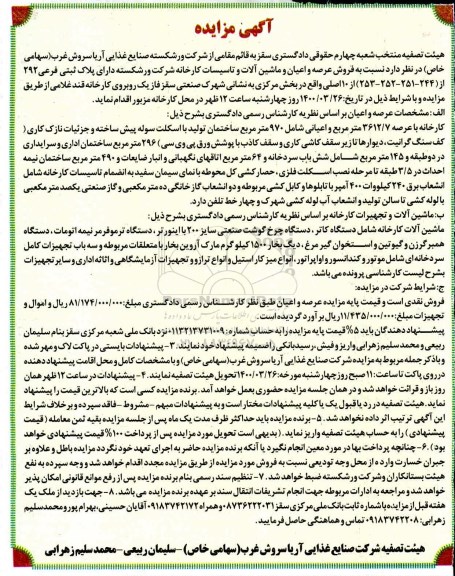 آگهی مزایده
هیئت تصفیه منتخب شعبه چهارم حقوقی دادگستری سقز به قائم مقامی از شرکت ورشکسته صنایع غذایی آریا سروش غرب (سهامی
خاص) در نظر دارد نسبت به فروش عرصه و اعیان و ماشین آلات و تاسیسات کارخانه شرکت ورشکسته دارای پلاک ثبتی فرعی ۲۹۲
از (۲۴۴-۲۵۱-۲۵۲-۲۵۳) از ۱۰ اصلی واقع در بخش مرکزی به نشانی شهرک صنعتی سقز فاز یک روبروی کارخانه قند غلامی از طریق
مزایده و با شرایط ذیل در تاریخ: ۱۴۰۰/۰۳/۲۶ روز چهارشنبه ساعت ۱۲ ظهر در محل کارخانه مزبور اقدام نماید.
الف: مشخصات عرصه و اعیان بر اساس نظریه کارشناس رسمی دادگستری بشرح ذیل:
کارخانه با عرصه ۳۶۱۲/۷ متر مربع و اعیانی شامل ۹۷۰ متر مربع ساختمان تولید با اسکلت سوله پیش ساخته و جزئیات نازک کاری (
کف سنگ گرانیت، دیوارها تا زیر سقف کاشی کاری و سقف کاذب با پوشش ورق پی وی سی) ۲۹۶ متر مربع ساختمان اداری و سرایداری
در دو طبقه و ۱۴۵ متر مربع شامل شش باب سردخانه و ۶۴ متر مربع اتاقهای نگهبانی و انبار ضایعات و ۴۹۰ متر مربع ساختمان نیمه
احداث در ۳/۵ طبقه تا مرحله نصب اسکلت فلزی، حصار کشی کل محوطه با نمای سیمان سفید به انضمام تاسیسات کارخانه شامل
انشعاب برق ۲۴۰ کیلووات ۴۰۰ آمپر با تابلوها و کابل کشی مربوطه و دو انشعاب گاز خانگی ده متر مکعبی و گاز صنعتی یکصد متر مکعبی
با لوله کشی تا سالن تولید و انشعاب آب لوله کشی شهرک و چهار خط تلفن دارد.
ب: ماشین آلات و تجهیزات کارخانه بر اساس نظریه کارشناس رسمی دادگستری بشرح ذیل:
ماشین آلات کارخانه شامل دستگاه کاتر، دستگاه چرخ گوشت صنعتی سایز ۲۰۰ با اینورتر، دستگاه ترموفرمر نیمه اتومات، دستگاه
همبرگرزن و گیوتین و استخوان گیر مرغ، دیگ بخار ۱۵۰۰ کیلوگرم مارک آروین بخار با متعلقات مربوطه و سه باب تجهیزات کامل
سردخانه ای شامل موتور و کندانسور و اواپراتور، انواع میز کار استیل و انواع ترازو و تجهیزات آزمایشگاهی و اثاثه اداری و سایر تجهیزات
بشرح لیست کارشناسی پرونده می باشد.
ج: شرایط شرکت در مزایده:
فروش نقدی است و قیمت پایه مزایده عرصه و اعیان طبق نظر کارشناس رسمی دادگستری مبلغ: ۸۱/۱۷۴/۰۰۰/۰۰۰ ریال و اموال و
تجهیزات مبلغ: ۱۱/۴۳۵/۰۰۰/۰۰۰ ریال برآورد گردیده است.
پیشنهاددهندگان باید ۵% قیمت پایه مزایده را به حساب شماره: ۰۱۱۳۲۱۳۷۳۱۰۰۹ نزد بانک ملی شعبه مرکزی سقز بنام سلیمان
ربیعی و محمد سلیم زهرابی واریز و فیش رسید بانکی را ضمیمه پیشنهاد خود نمایند. ۳- پیشنهادات بایستی در پاکت لاک و مهر شده
و با ذکر جمله مربوط به مزایده شرکت صنایع غذایی آریا سروش غرب (سهامی خاص) و با مشخصات کامل و محل اقامت پیشنهاد دهنده
در روی پاکت تا ساعت: ۱۱ صبح روز چهارشنبه مورخه: ۱۴۰۰/۰۳/۲۶ تحویل هیئت تصفیه نمایند. ۴- پیشنهادات در ساعت ۱۲ ظهر همان
روز باز و قرائت خواهد شد و در همان جلسه مزایده حضوری بعمل خواهد آمد. برنده مزایده کسی است که بالاترین قیمت را پیشنهاد
نماید. هیئت تصفیه در رد یا قبول یک یا کلیه پیشنهادات مختار است و به پیشنهادات مبهم - مشروط - فاقد سپرده و بر خلاف شرایط
این آگهی ترتیب اثر داده نخواهد شد. ۵- برنده مزایده باید حداکثر ظرف مدت یک ماه پس از جلسه مزایده بقیه ثمن معامله (قیمت
پیشنهادی) را به حساب هیئت تصفیه واریز نماید. (بدیهی است تحویل مورد مزایده پس از پرداخت ۱۰۰% قیمت پیشنهادی خواهد
بود). ۶- چنانچه پرداخت بها در مورد معین انجام نگیرد یا آنکه برنده مزایده حاضر به اجرای تعهد خود نگردد مزایده باطل و علاوه بر
جبران خسارت وارده از محل وجه تودیعی نسبت به فروش مورد مزایده از طریق مزایده مجدد اقدام خواهد شد و وجه سپرده به نفع
هیئت بستانکاران و شرکت ورشکسته ضبط خواهد شد. ۷- تنظیم سند رسمی بنام برنده مزایده پس از رفع موانع قانونی امکان پذیر
خواهد شد و مراجعه به ادارات مربوطه جهت انجام تشریفات انتقال سند بر عهده برنده مزایده می باشد. ۸- جهت بازدید از ملک یک
هفته قبل از مزایده با شماره ثابت بانک ملی مرکزی سقز ۰۸۷۳۶۲۲۲۰۳۱ و همراه ۰۹۱۸۳۷۴۲۱۷۲ آقایان حسینی، بهرام پور و محمد سلیم
زهرابی: ۰۹۱۸۳۷۴۲۲۰۸ تماس و هماهنگی حاصل فرمایید.
هیئت تصفیه شرکت صنایع غذایی آریا سروش غرب (سهامی خاص) - سلیمان ربیعی - محمد سلیم زهرابی